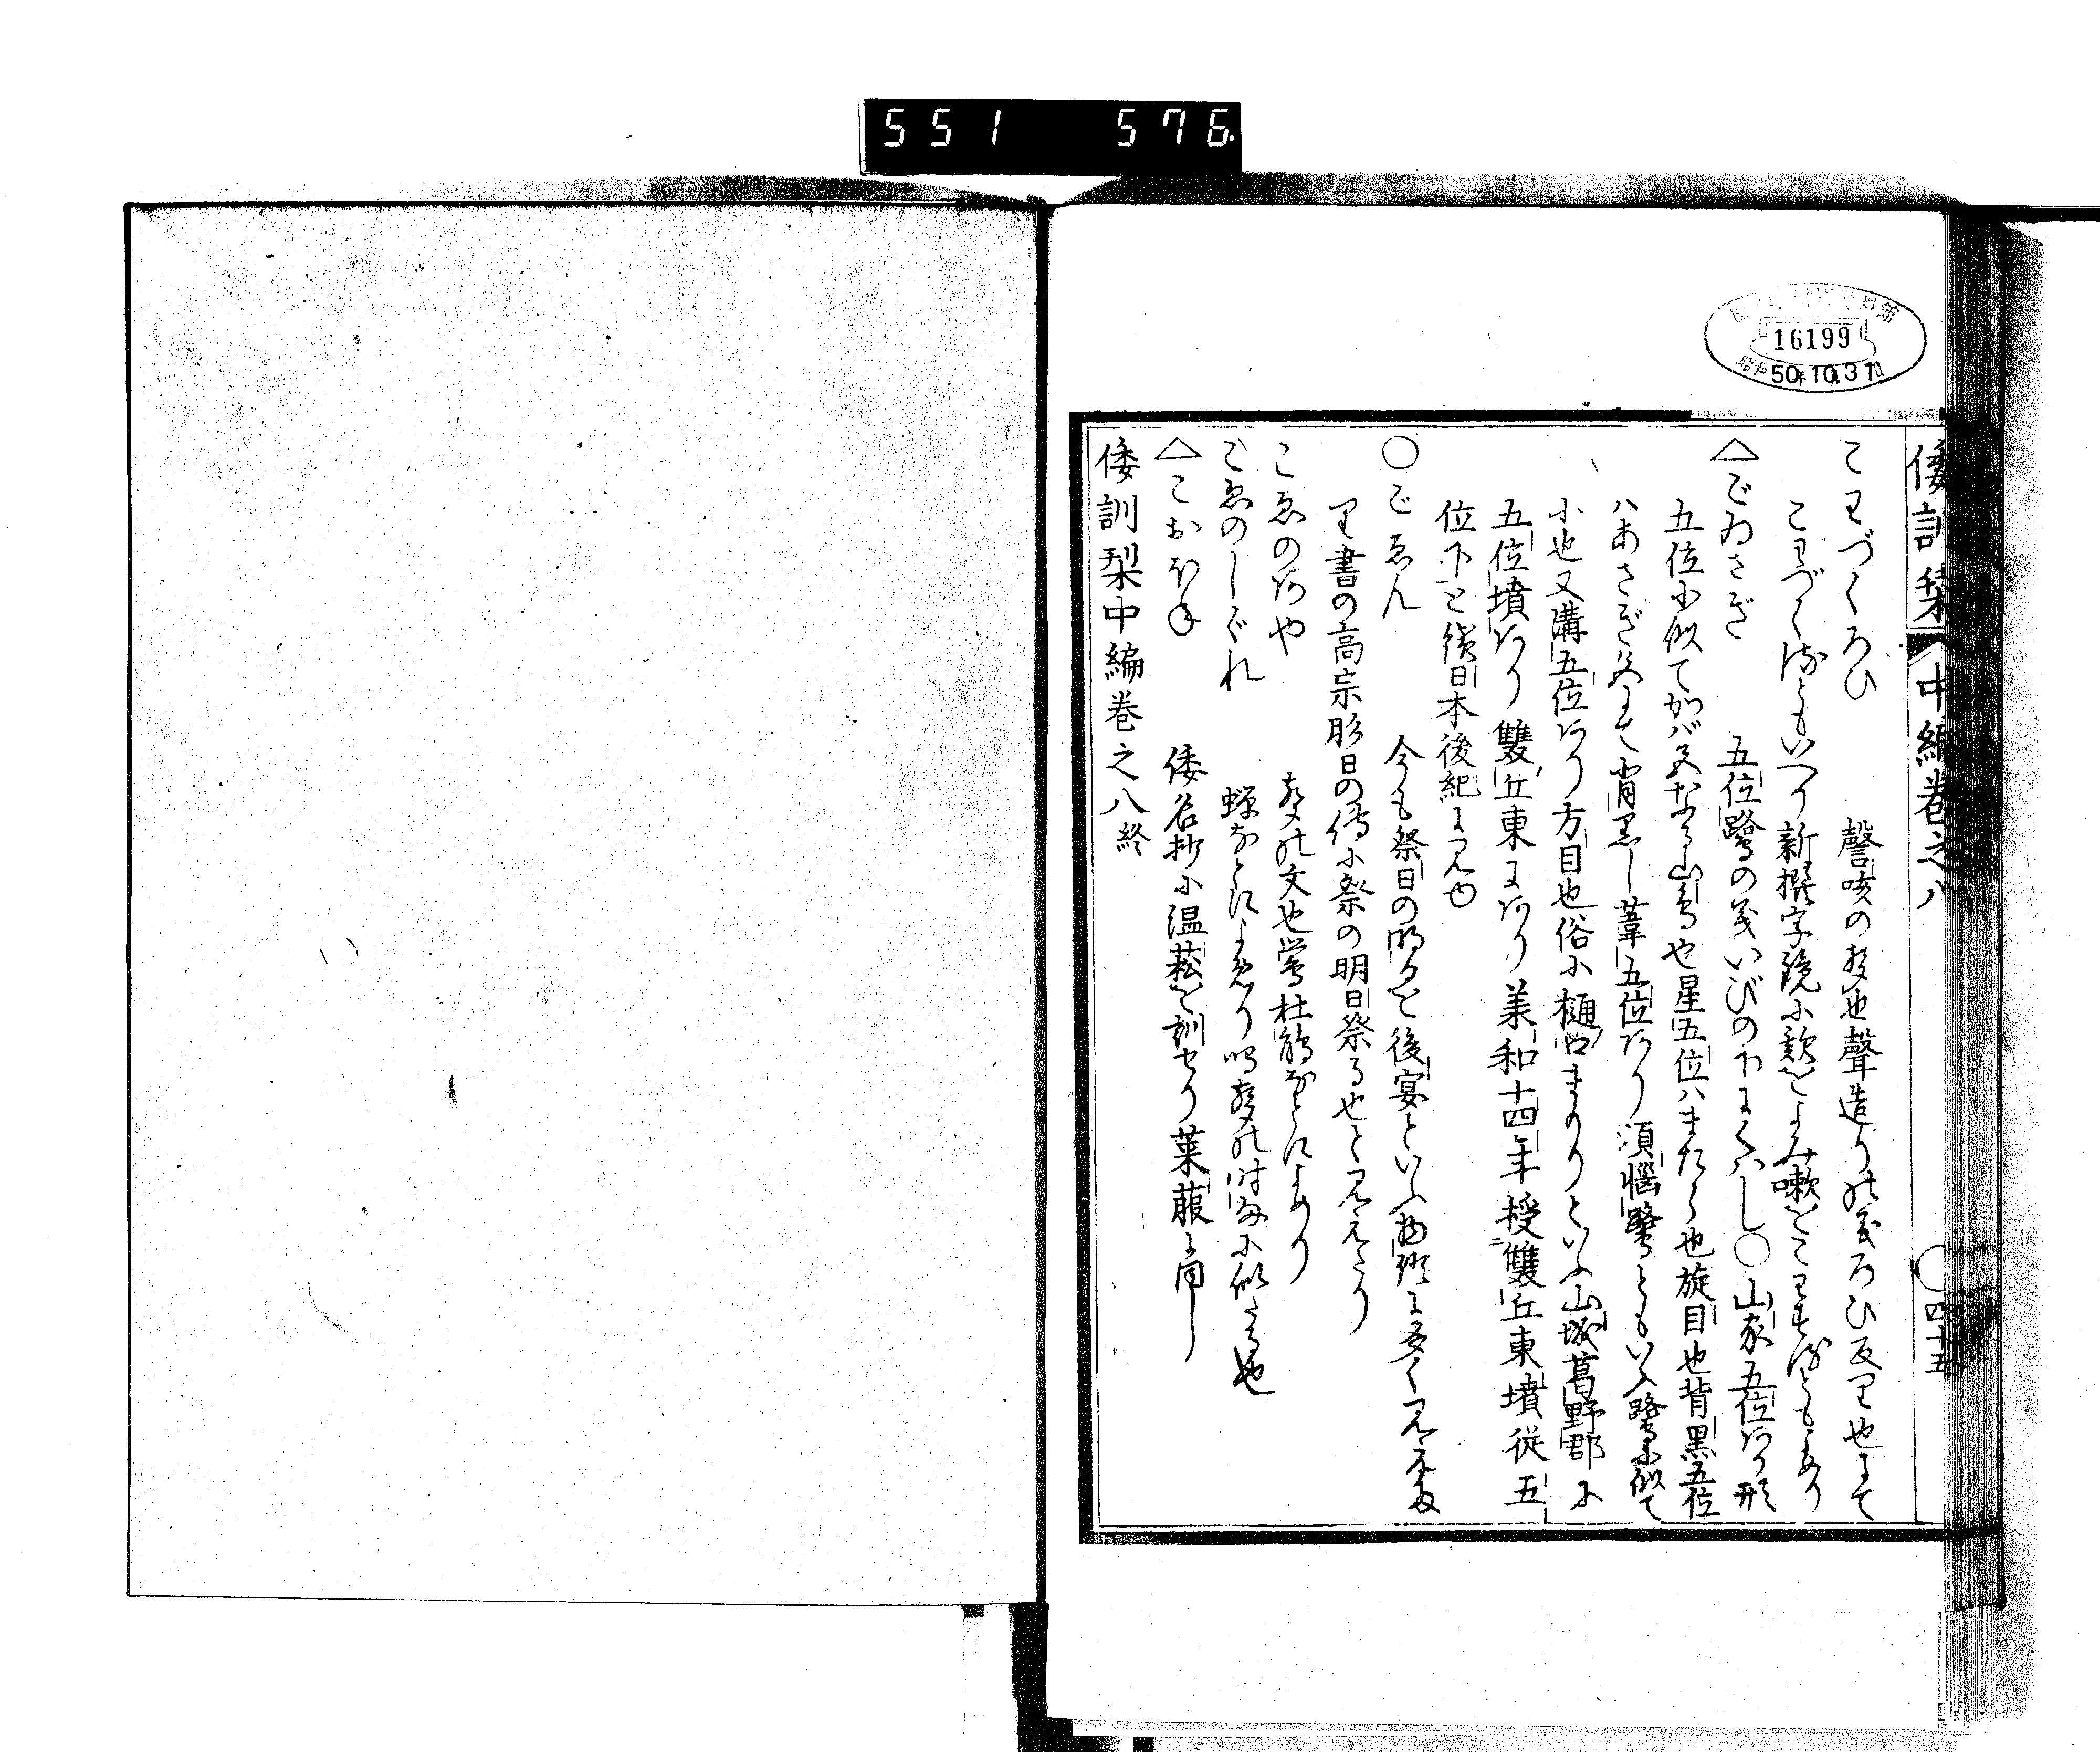 551 576
16199
昭和50年10月31日
倭訓栞 中編巻之八 〇四十五
こわづくろひ 謦咳の声也聲造りの義ろひ反り也よて
こわづくるともいへり新撰字鏡に欬をよみ嗽をこわするともあり
△ごゐさぎ 五位鷺の義いびの下にくはし〇山家五位あり形
五位に似てかば色なる山鳥也星五位ハまたら也旋目也背黒五位
ハあさぎ色にて背黒し葦五位あり須悩鷺ともいふ鷺に似て
小也又溝五位あり方目也俗に樋口まもりといふ山城葛野郡に
五位墳あり雙丘東にあり美和十四年授雙丘東墳従五
位下と続日本後紀に見ゆ
〇ごゑん 今も祭日の明るを後宴といふ物語に多く見えた
り書の高宗肜日の傳に祭の明日祭る也と見えたり
こゑのあや 声の文也鶯杜鵑なとによめり
ごゑのしぐれ 蝉なとによめり鳴声の時雨に似たる也
△こおほね 倭名抄に温菘を訓せり莱菔に同し
倭訓栞中編巻之八終